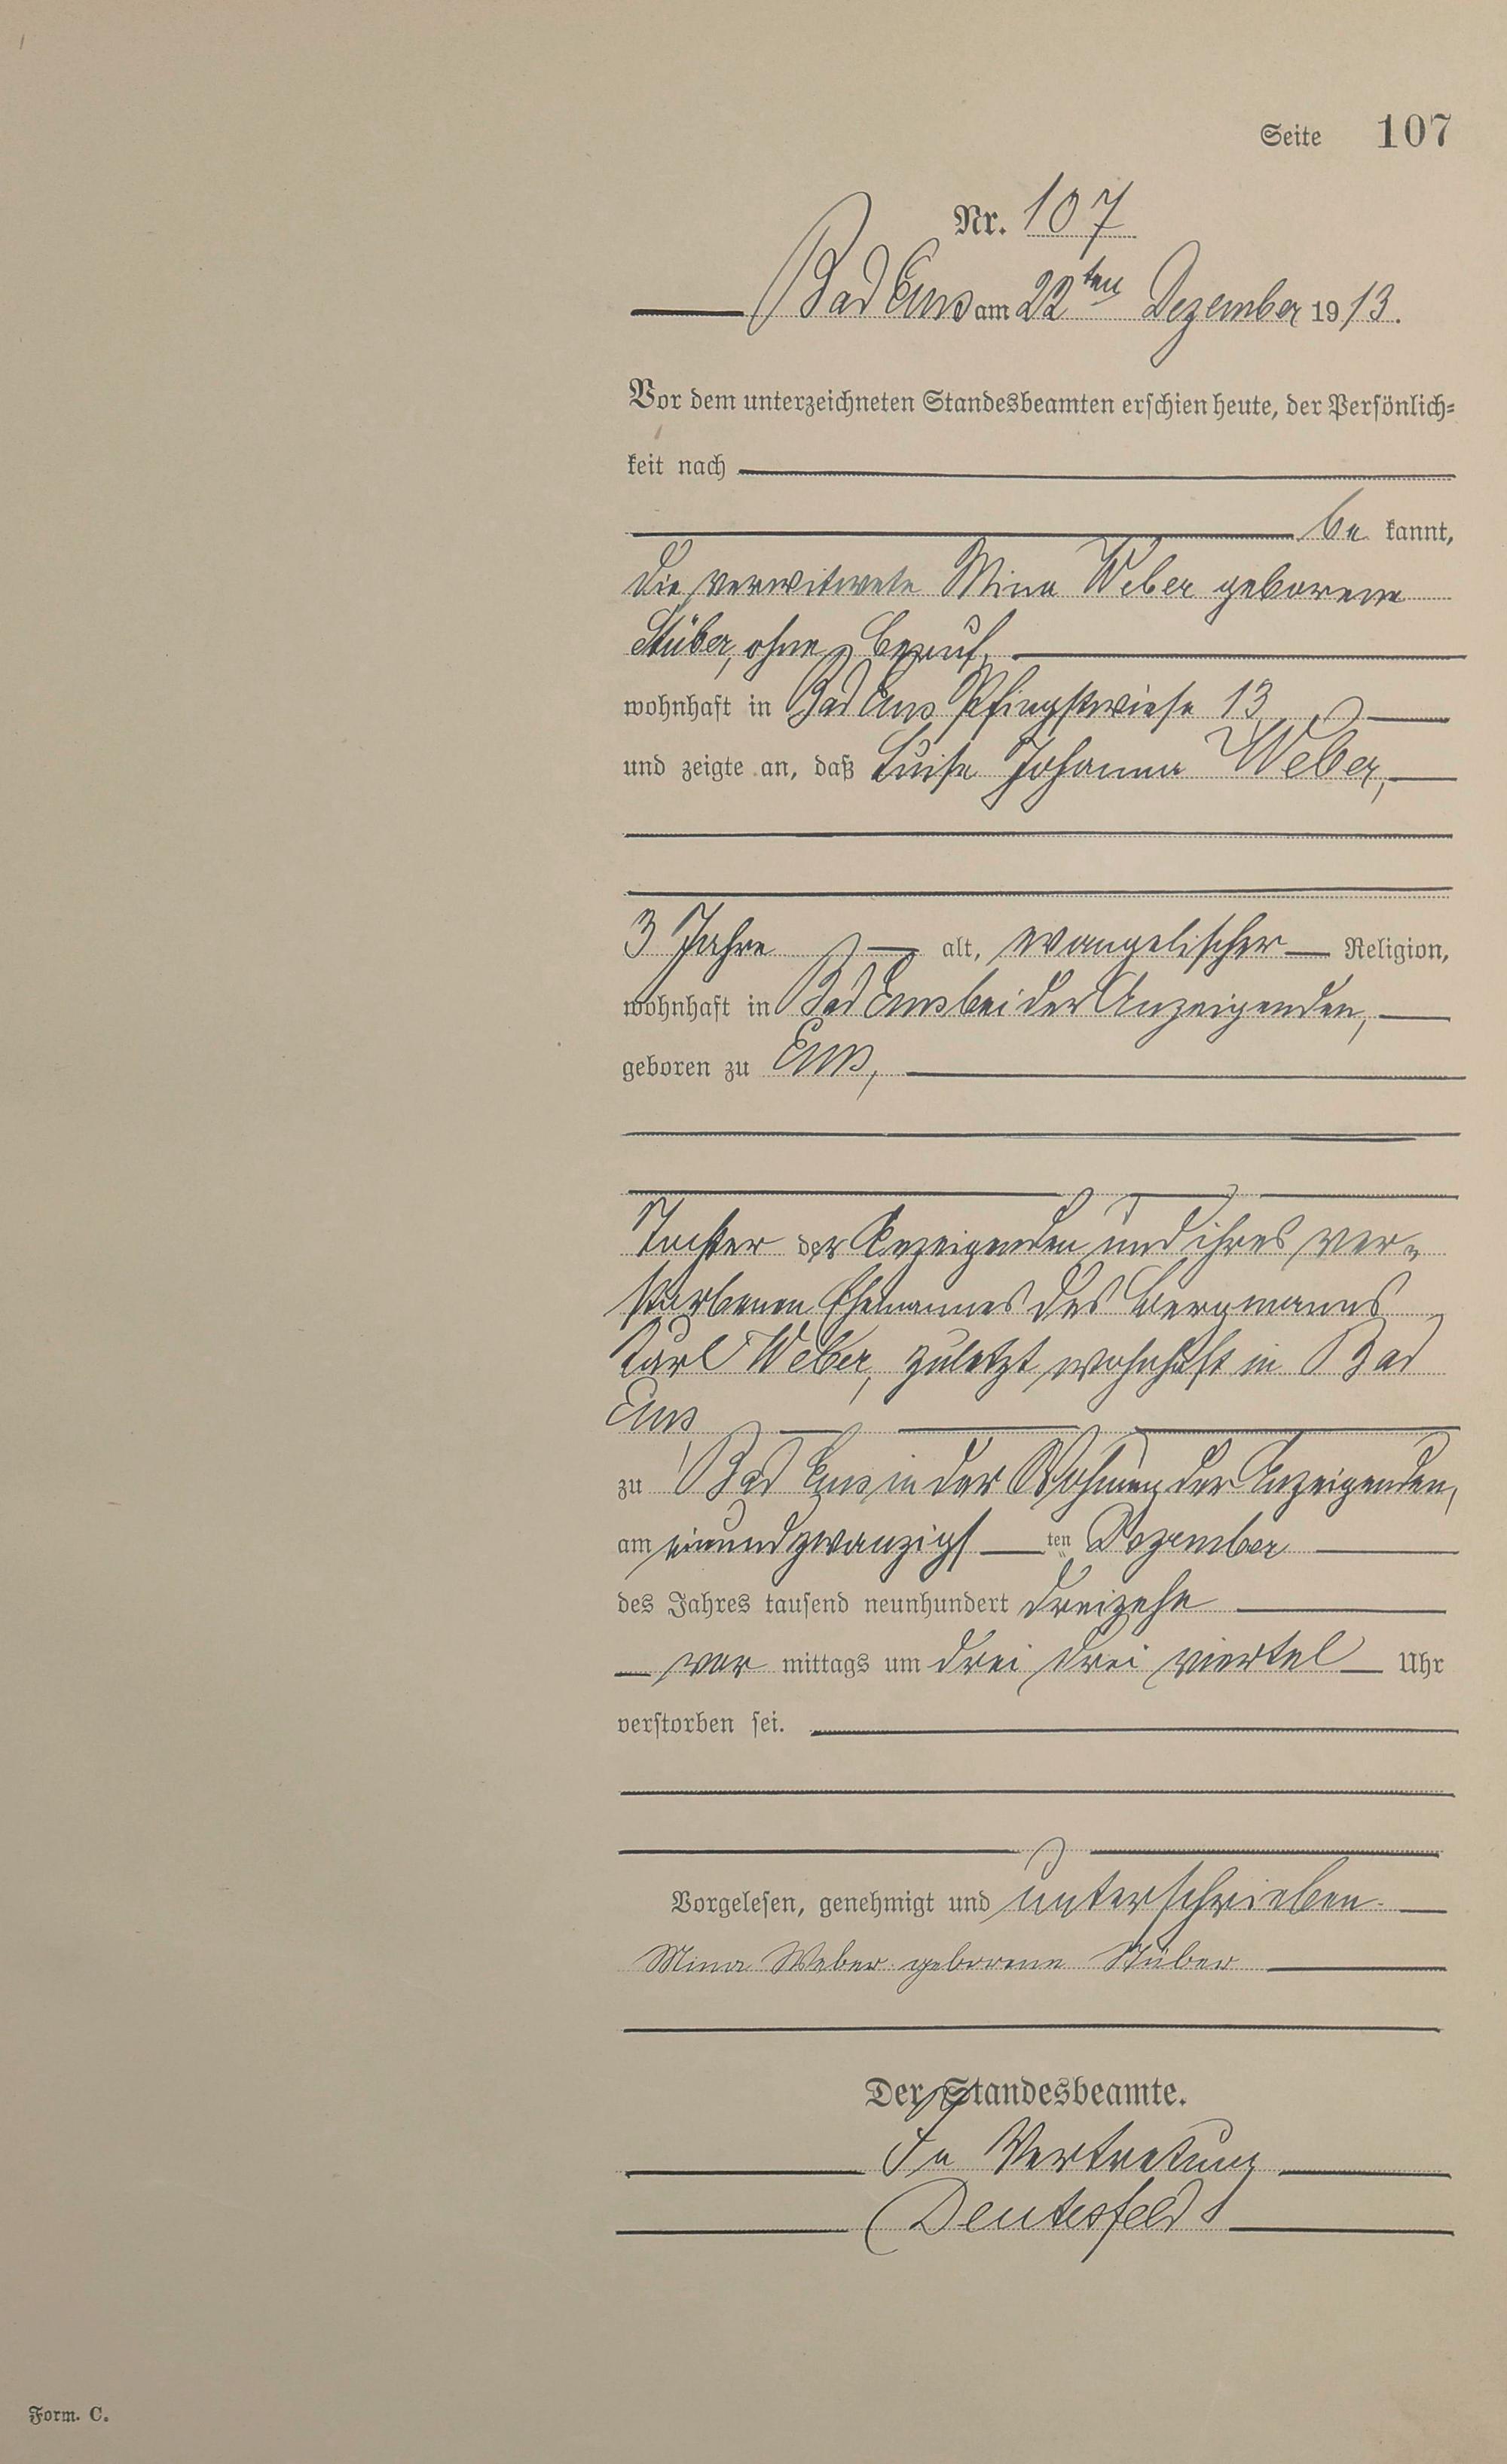 Seite 107
Nr. 107
Bad Ems am 22ten Dezember 1913.
Vor dem unterzeichneten Standesbeamten erschien heute, der Persönlich-
keit nach
be kannt,
die verwitwete Mina Weber geborene
Stüber, ohne Beruf,
wohnhaft in Bad Ems Pfingstwiese 13,
und zeigte an, daß Luise Johanna Weber,
3 Jahre alt, evangelischer Religion,
wohnhaft in Bad Ems bei der Anzeigenden,
geboren zu Ems,
Tochter der Anzeigenden und ihres ver-
storbenen Ehemannes des Bergmanns
Karl Weber, zuletzt wohnhaft in Bad
Ems
zu Bad Ems in der Wohnung der Anzeigenden,
am einundzwanzigsten Dezember
des Jahres tausend neunhundert dreizehn
vor mittags um drei drei viertel Uhr
verstorben sei.
Vorgelesen, genehmigt und unterschrieben.
Mina Weber geborene Stüber
Der Standesbeamte.
In Vertretung
Deutesfeld
Form. C.